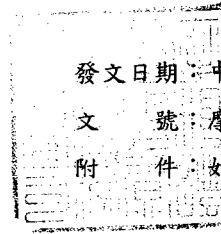 發文日期：中
文號：
附件：如